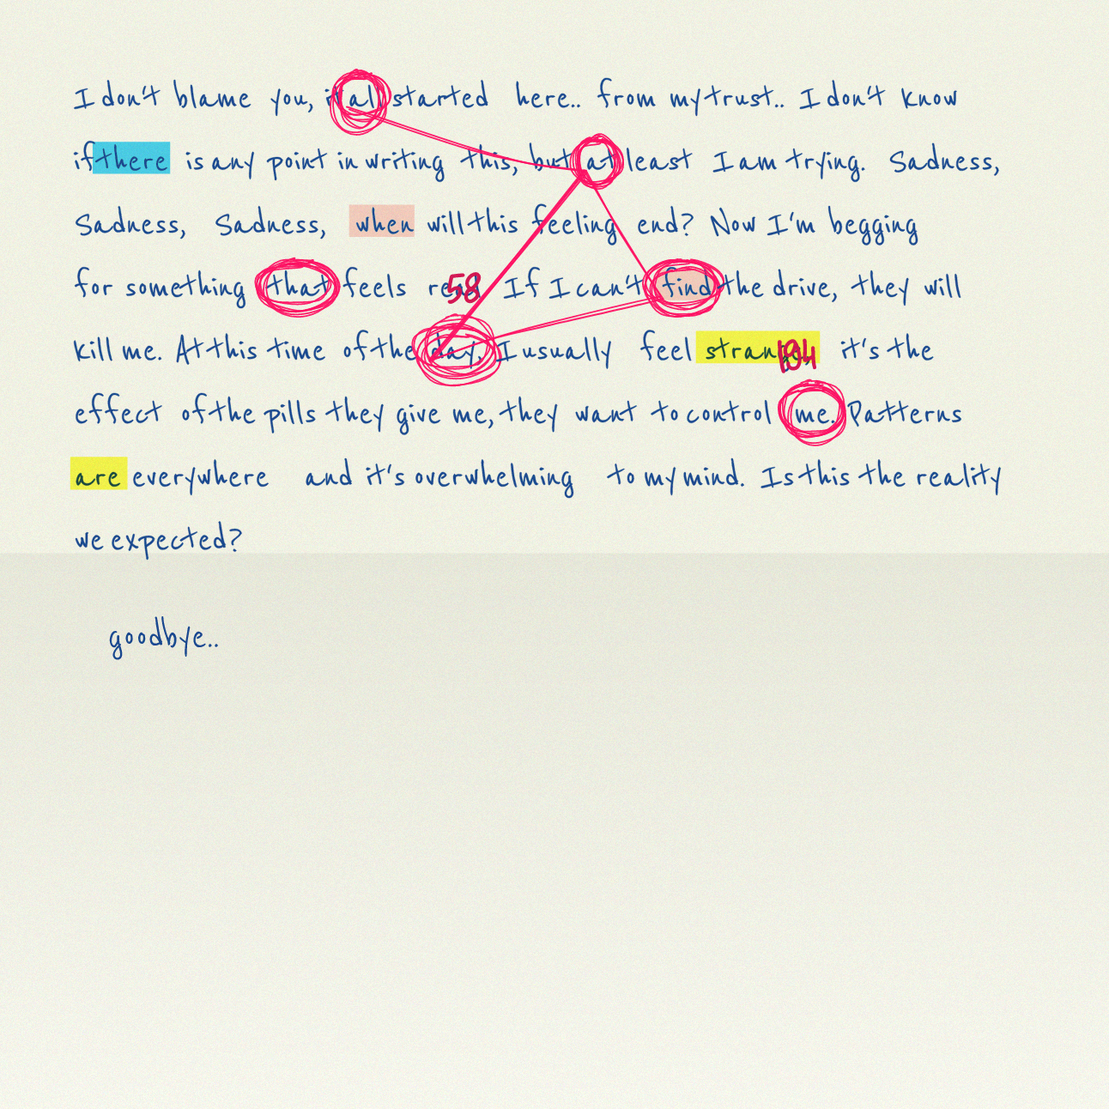 I don't blame you, it all started here.. from my trust.. I don't know
if there is any point in writing this, but at least I am trying. Sadness,
Sadness, Sadness, when will this feeling end? Now I'm begging
for something that feels real 58 If I can't find the drive, they will
kill me. At this time of the day, I usually feel strange, 194 it's the
effect of the pills they give me, they want to control me. Patterns
are everywhere and it's overwhelming to my mind. Is this the reality
we expected?
goodbye..